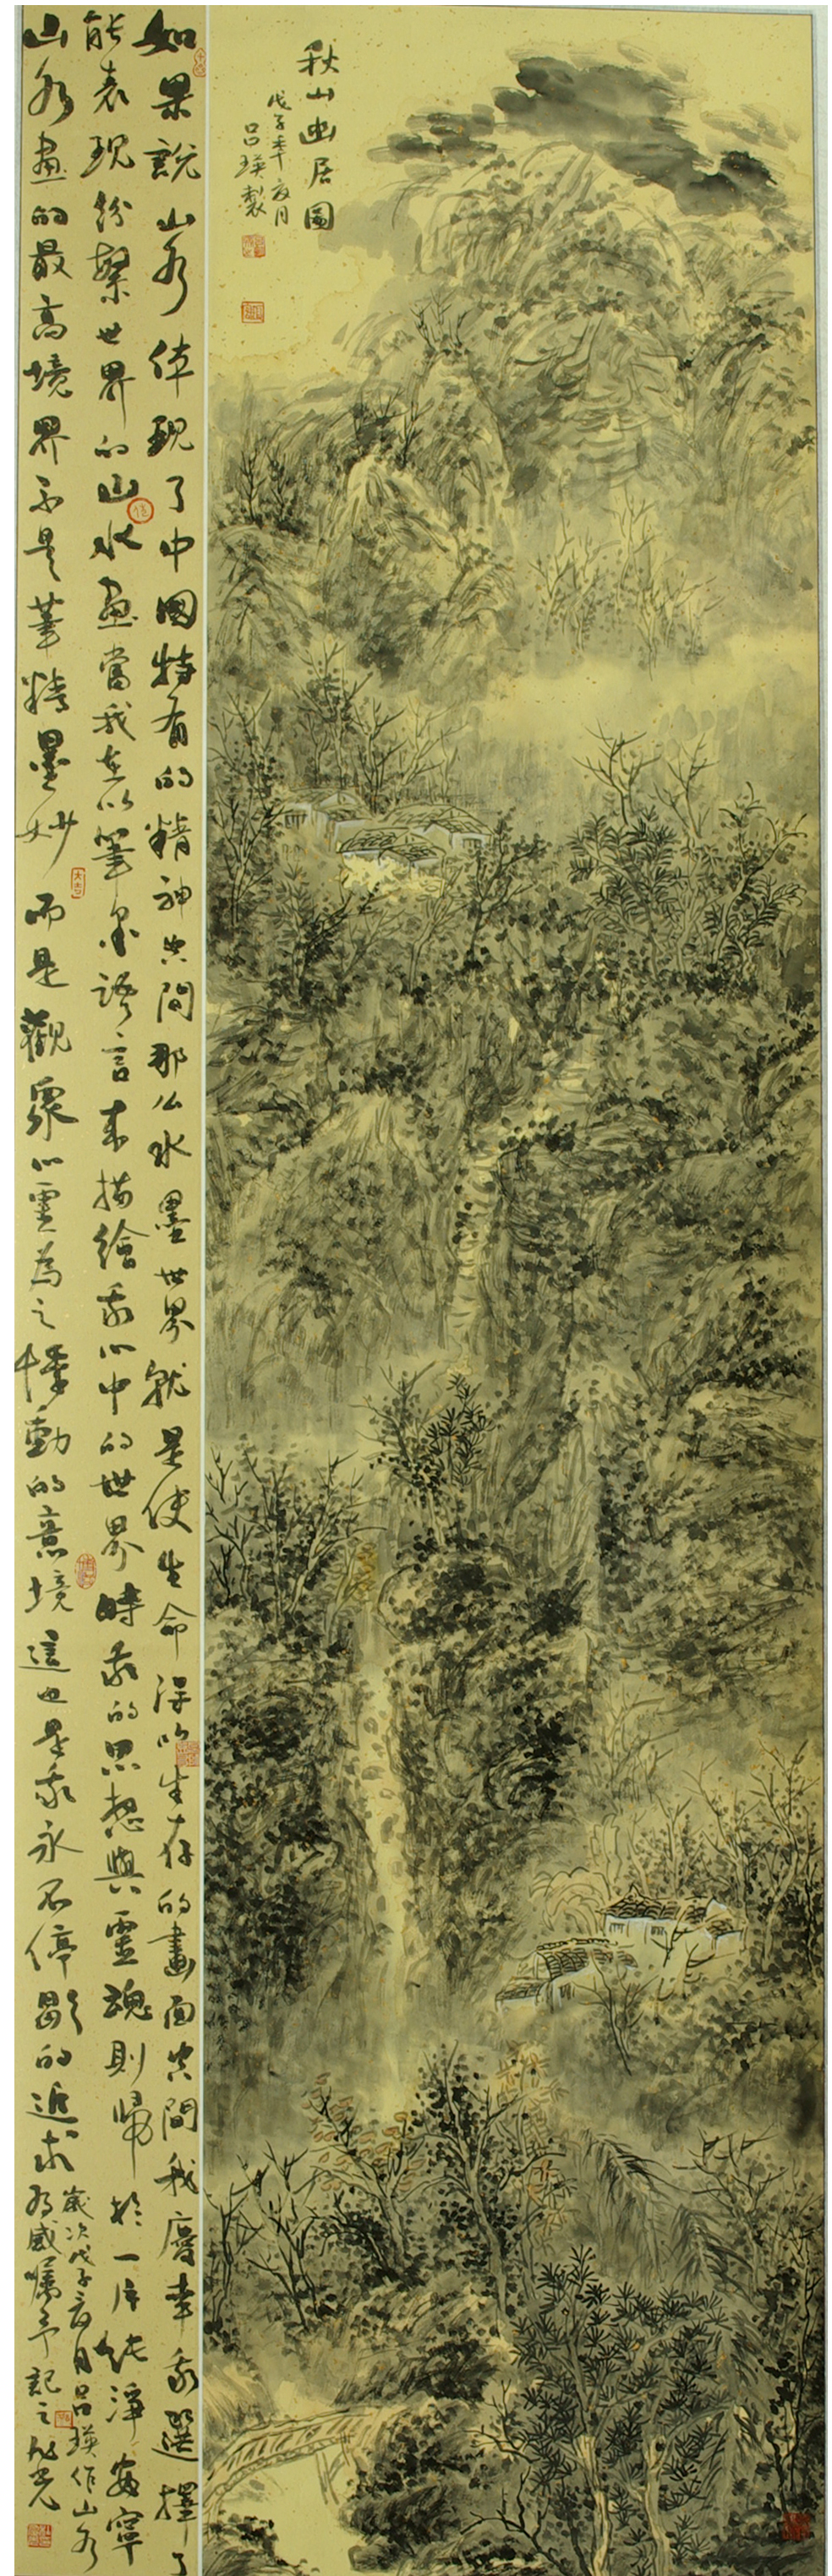 秋山幽居圖
戊子年夏月
呂瑛製
如果說山水体現了中國特有的精神空間那么水墨世界就是使生命得以生存的畫面空間我慶幸我選擇了
能表現紛繁世界的山水畫當我在以筆墨語言來描繪我心中的世界時我的思想與靈魂則歸於一片純淨安寧
山水畫的最高境界不是筆精墨妙而是觀眾心靈為之悸動的意境這也是我永不停歇的追求
歲次戊子夏月呂瑛作山水
囑予記之